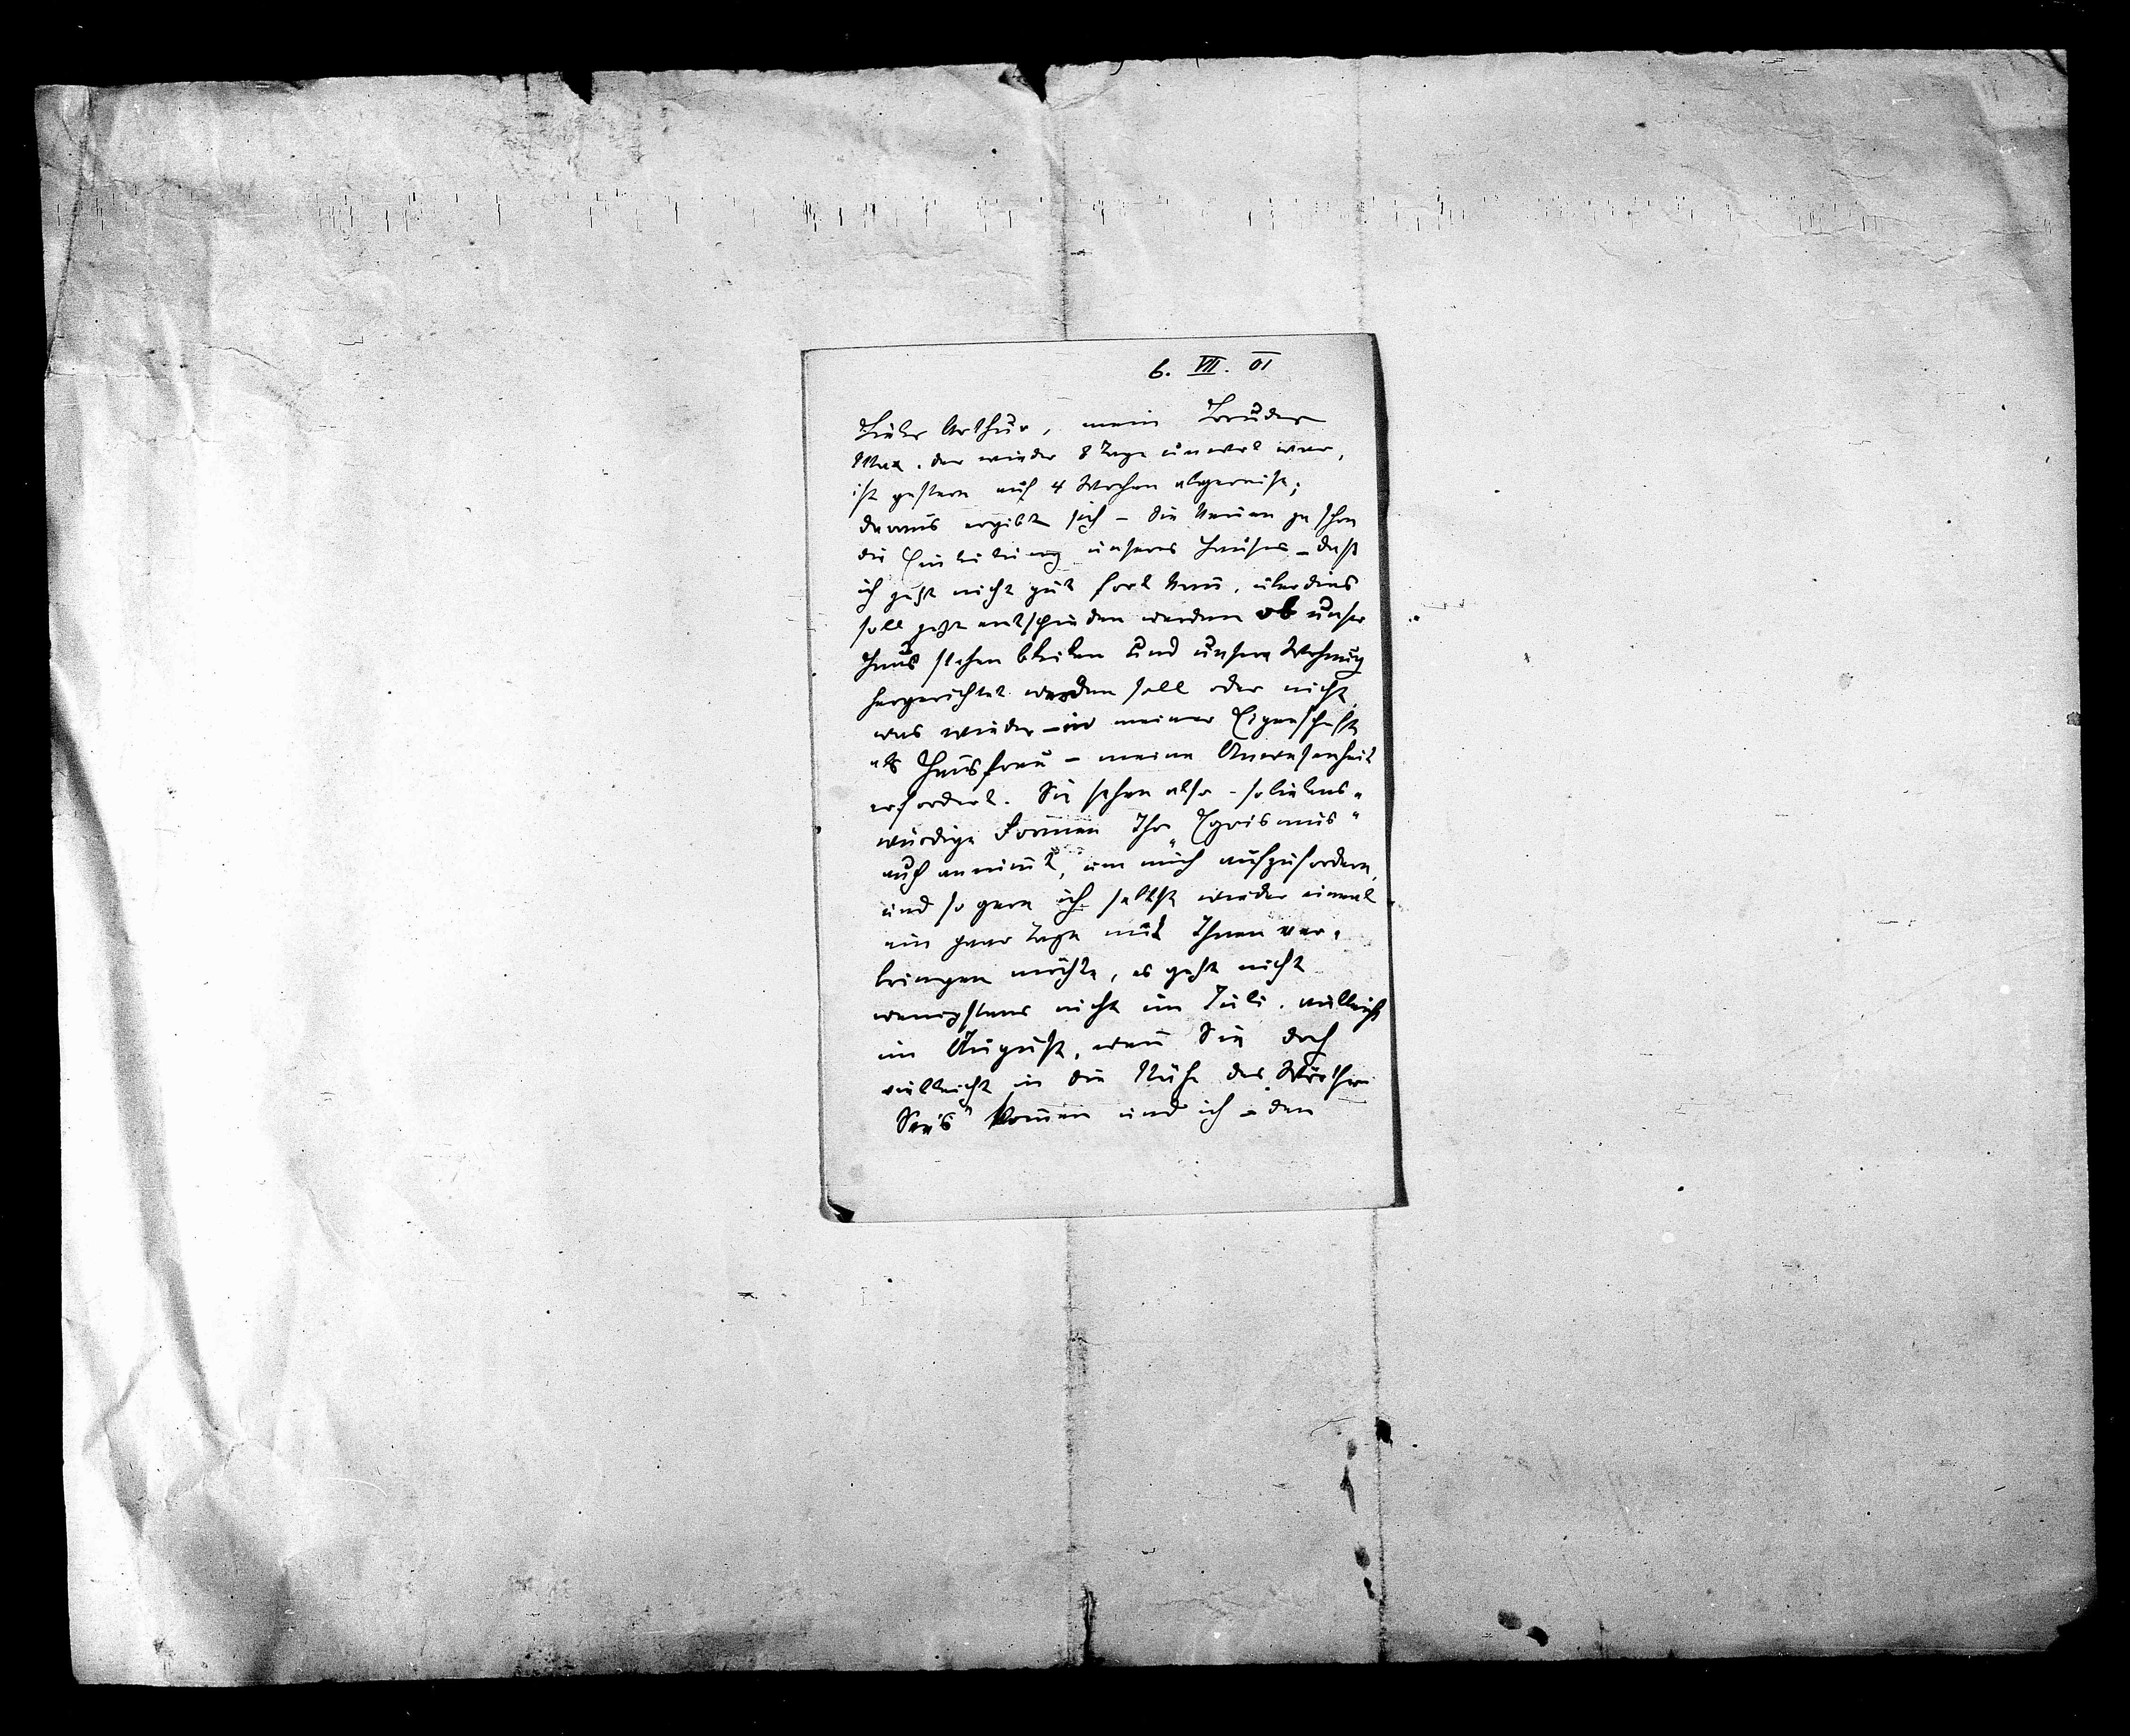 6. VII. 01
Lieber Arthur, mein Bruder
Max, der wieder 8 Tage unwol war,
ist gestern auf 4 Wochen abgereist;
daraus ergibt sich – Sie kennen ja schon
die Einteilung unseres Hauses – daß
ich jetzt nicht gut fort kann, überdies
soll jetzt entschieden werden ob unser
Haus stehen bleiben und unsere Wohnung
hergerichtet werden soll oder nicht,
was wieder – in meiner Eigenschaft
als Hausfrau – meine Anwesenheit
erfordert. Sie sehen also – so liebens-
würdige Formen Ihr „Egoismus“
auch annimt, um mich aufzufordern,
und so gern ich selbst wieder einmal
ein paar Tage mit Ihnen ver-
bringen möchte, es geht nicht
wenigstens nicht im Juli. Vielleicht
im August, wenn Sie doch
vielleicht in die Nähe des „Wörther
See's“ kommen und ich – den